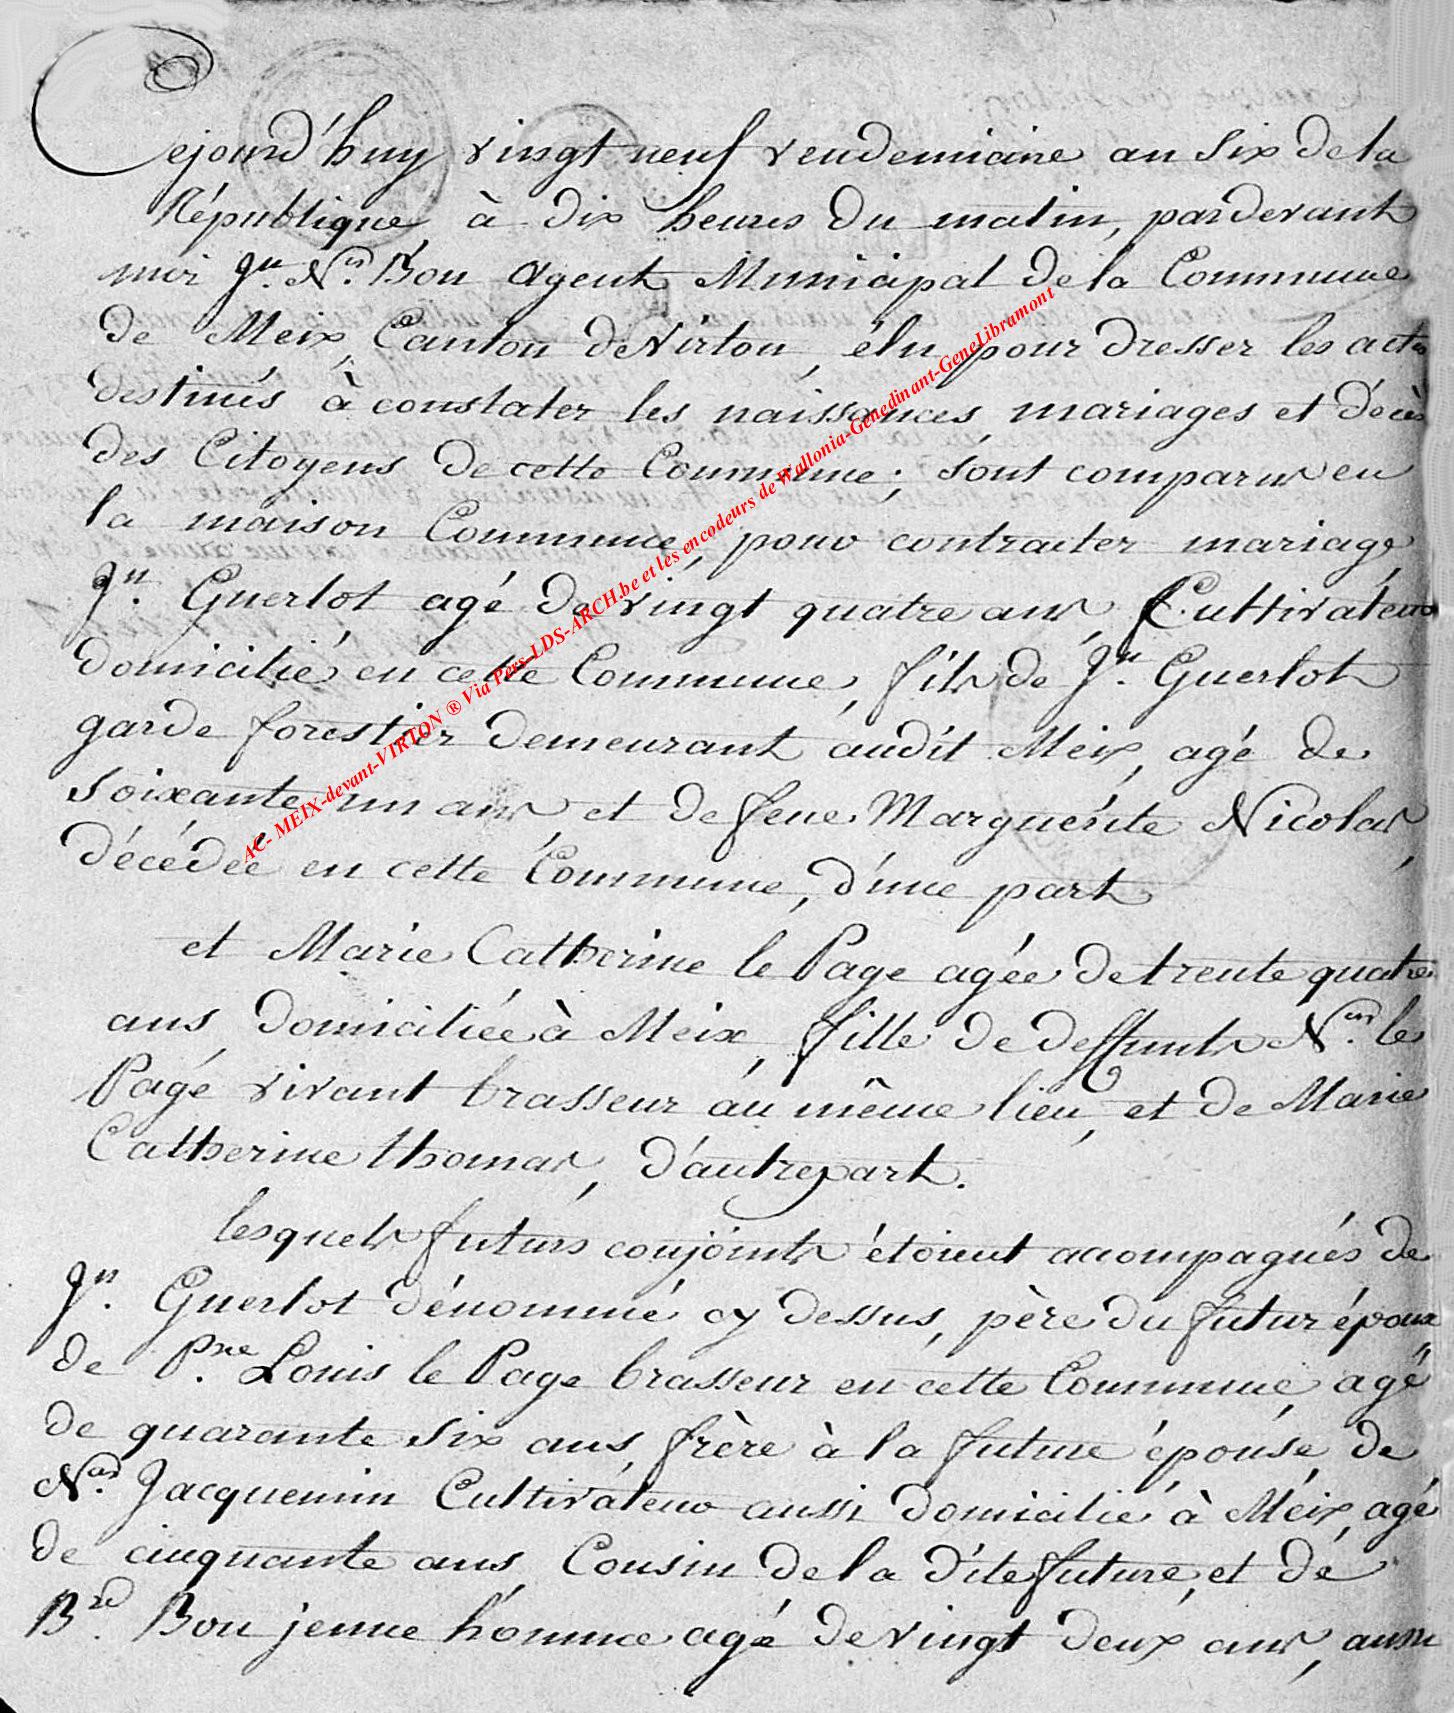 Cejourd'huy vingt neuf vendemiaire an six de la
République, à dix heures du matin, pardevant
moi Jn. Nas. Bon Agent Municipal de la Commune
de Meix, Canton de Virton, élu pour dresser les actes
destinés à constater les naissances, mariages et décès
des Citoyens de cette Commune; sont comparus en
la maison Commune, pour contracter mariage,
Jn. Guerlot agé de vingt quatre ans, Cultivateur
domicilié en cette Commune, fils de Jn. Guerlot
garde forestier demeurant audit Meix, agé de
soixante un ans et de feue Marguerite Nicolas,
décédée en cette Commune, d'une part
et Marie Catherine le Page agée de trente quatre
ans, domiciliée à Meix, fille de deffunts Nas. le
Page vivant brasseur au même lieu, et de Marie
Catherine thomas, d'autre part.
lesquels futurs conjoints étoient accompagnés de
Jn. Guerlot dénommé cy dessus, père du futur époux
de Pre. Louis le Page brasseur en cette Commune, agé
de quarante six ans, frère à la future épouse, de
Nas. Jacquemin Cultivateur aussi domicilié à Meix, agé
de cinquante ans, Cousin de la dite future, et de
Brd. Bon jeune homme agé de vingt deux ans, aussi
AC- MEIX-devant-VIRTON ® Via Pers-LDS-ARCH.be et les encodeurs de Wallonia-Genedinant-GeneLibramont